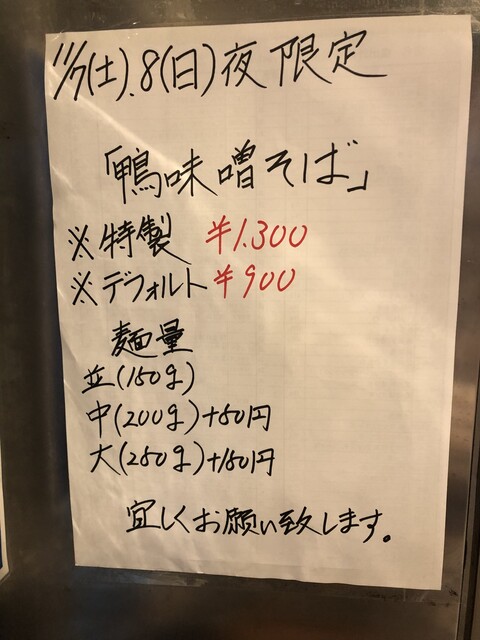 11/7(土).8(日)夜限定
「鴨味噌そば」
※特製 ¥1.300
※デフォルト ¥900
麺量
並(150g)
中(200g)+50円
大(250g)+150円
宜しくお願い致します。